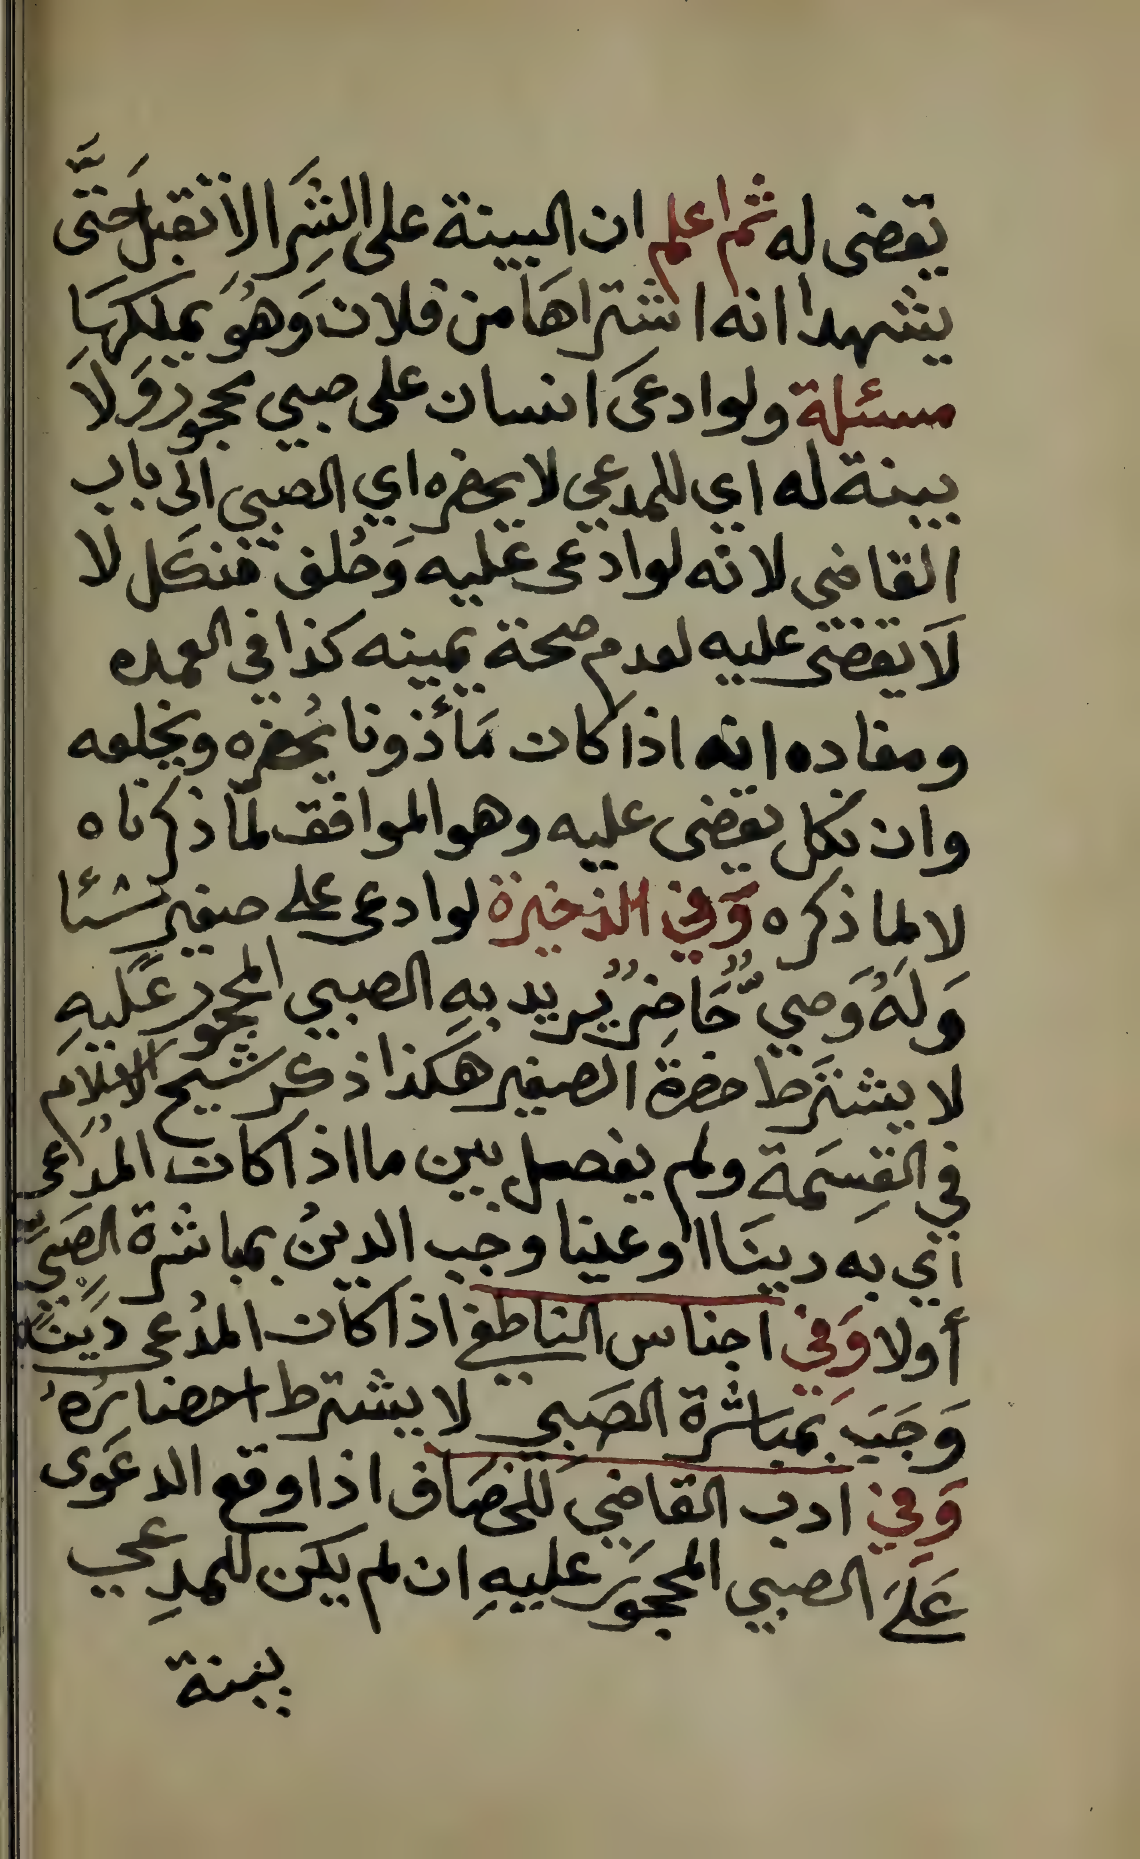 يقضى له ثم اعلم ان البينة على الشِرَا لا تقبل حَتَّى
يشهدا انه اشتراهَا من فلان وَهوُ يملكهَا
مسئلة ولو ادعىَ انسان على صبي محجور وَلاَ
بينة له اي للمدعي لا يحضره اي الصبي الى باب
القاضي لانه لو ادعى عليه وَحُلف فنكَل لا
لاَ يقضى عليه لعدم صحة يمينه كذا في العمده
ومفاده انه اذا كان مَأذونا يُحضره ويحلفه
وان نكل يقضى عليه وهو الموافق لمَا ذكرناه
لا لما ذكره وَفي الذخيرة لو ادعى على صغير شئا
وَلَهُ وَصيٌّ حَاضِرٌ يريد بهِ الصبي المحجور عَليهِ
لا يشترط حضرة الصغير هكذا ذكر شيخ الاسلام
في القِسمَة ولم يفصل بين ما اذا كان المدُعى
أي به دينَا اوعينا وجب الدينُ بمباشرة الصَبيّ
أولا وَفي اجناس الناطفي اذا كان المدُعى دَيْنًا
وَجَبَ بمباشرة الصَبي لا يشترط احضَارُهُ
وَفي ادب القاضي للخصَاف اذا وقع الدعَوى
عَلىَ الصبي المحجوَر عليهِ ان لم يكن للمدِعي
بينة